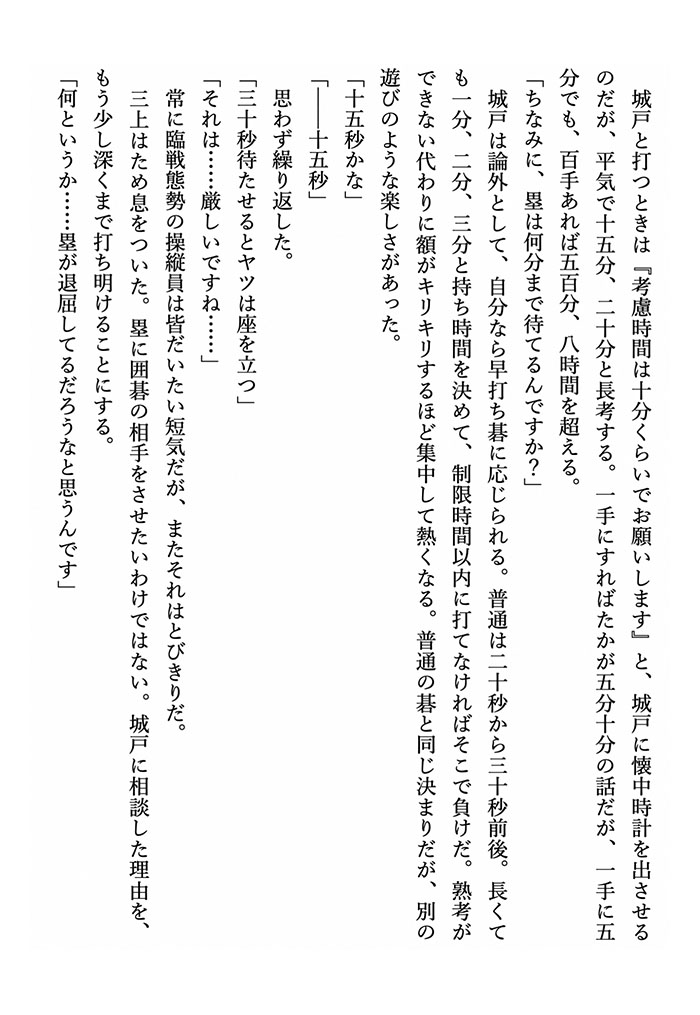 城戸と打つときは『考慮時間は十分くらいでお願いします』と、城戸に懐中時計を出させる
のだが、平気で十五分、二十分と長考する。一手にすればたかが五分十分の話だが、一手に五
分でも、百手あれば五百分、八時間を超える。
「ちなみに、塁は何分まで待てるんですか？」
　城戸は論外として、自分なら早打ち碁に応じられる。普通は二十秒から三十秒前後。長くて
も一分、二分、三分と持ち時間を決めて、制限時間以内に打てなければそこで負けだ。熟考が
できない代わりに額がキリキリするほど集中して熱くなる。普通の碁と同じ決まりだが、別の
遊びのような楽しさがあった。
「十五秒かな」
「――十五秒」
　思わず繰り返した。
「三十秒待たせるとヤツは座を立つ」
「それは……厳しいですね……」
　常に臨戦態勢の操縦員は皆だいたい短気だが、またそれはとびきりだ。
　三上はため息をついた。塁に囲碁の相手をさせたいわけではない。城戸に相談した理由を、
もう少し深くまで打ち明けることにする。
「何というか……塁が退屈してるだろうなと思うんです」